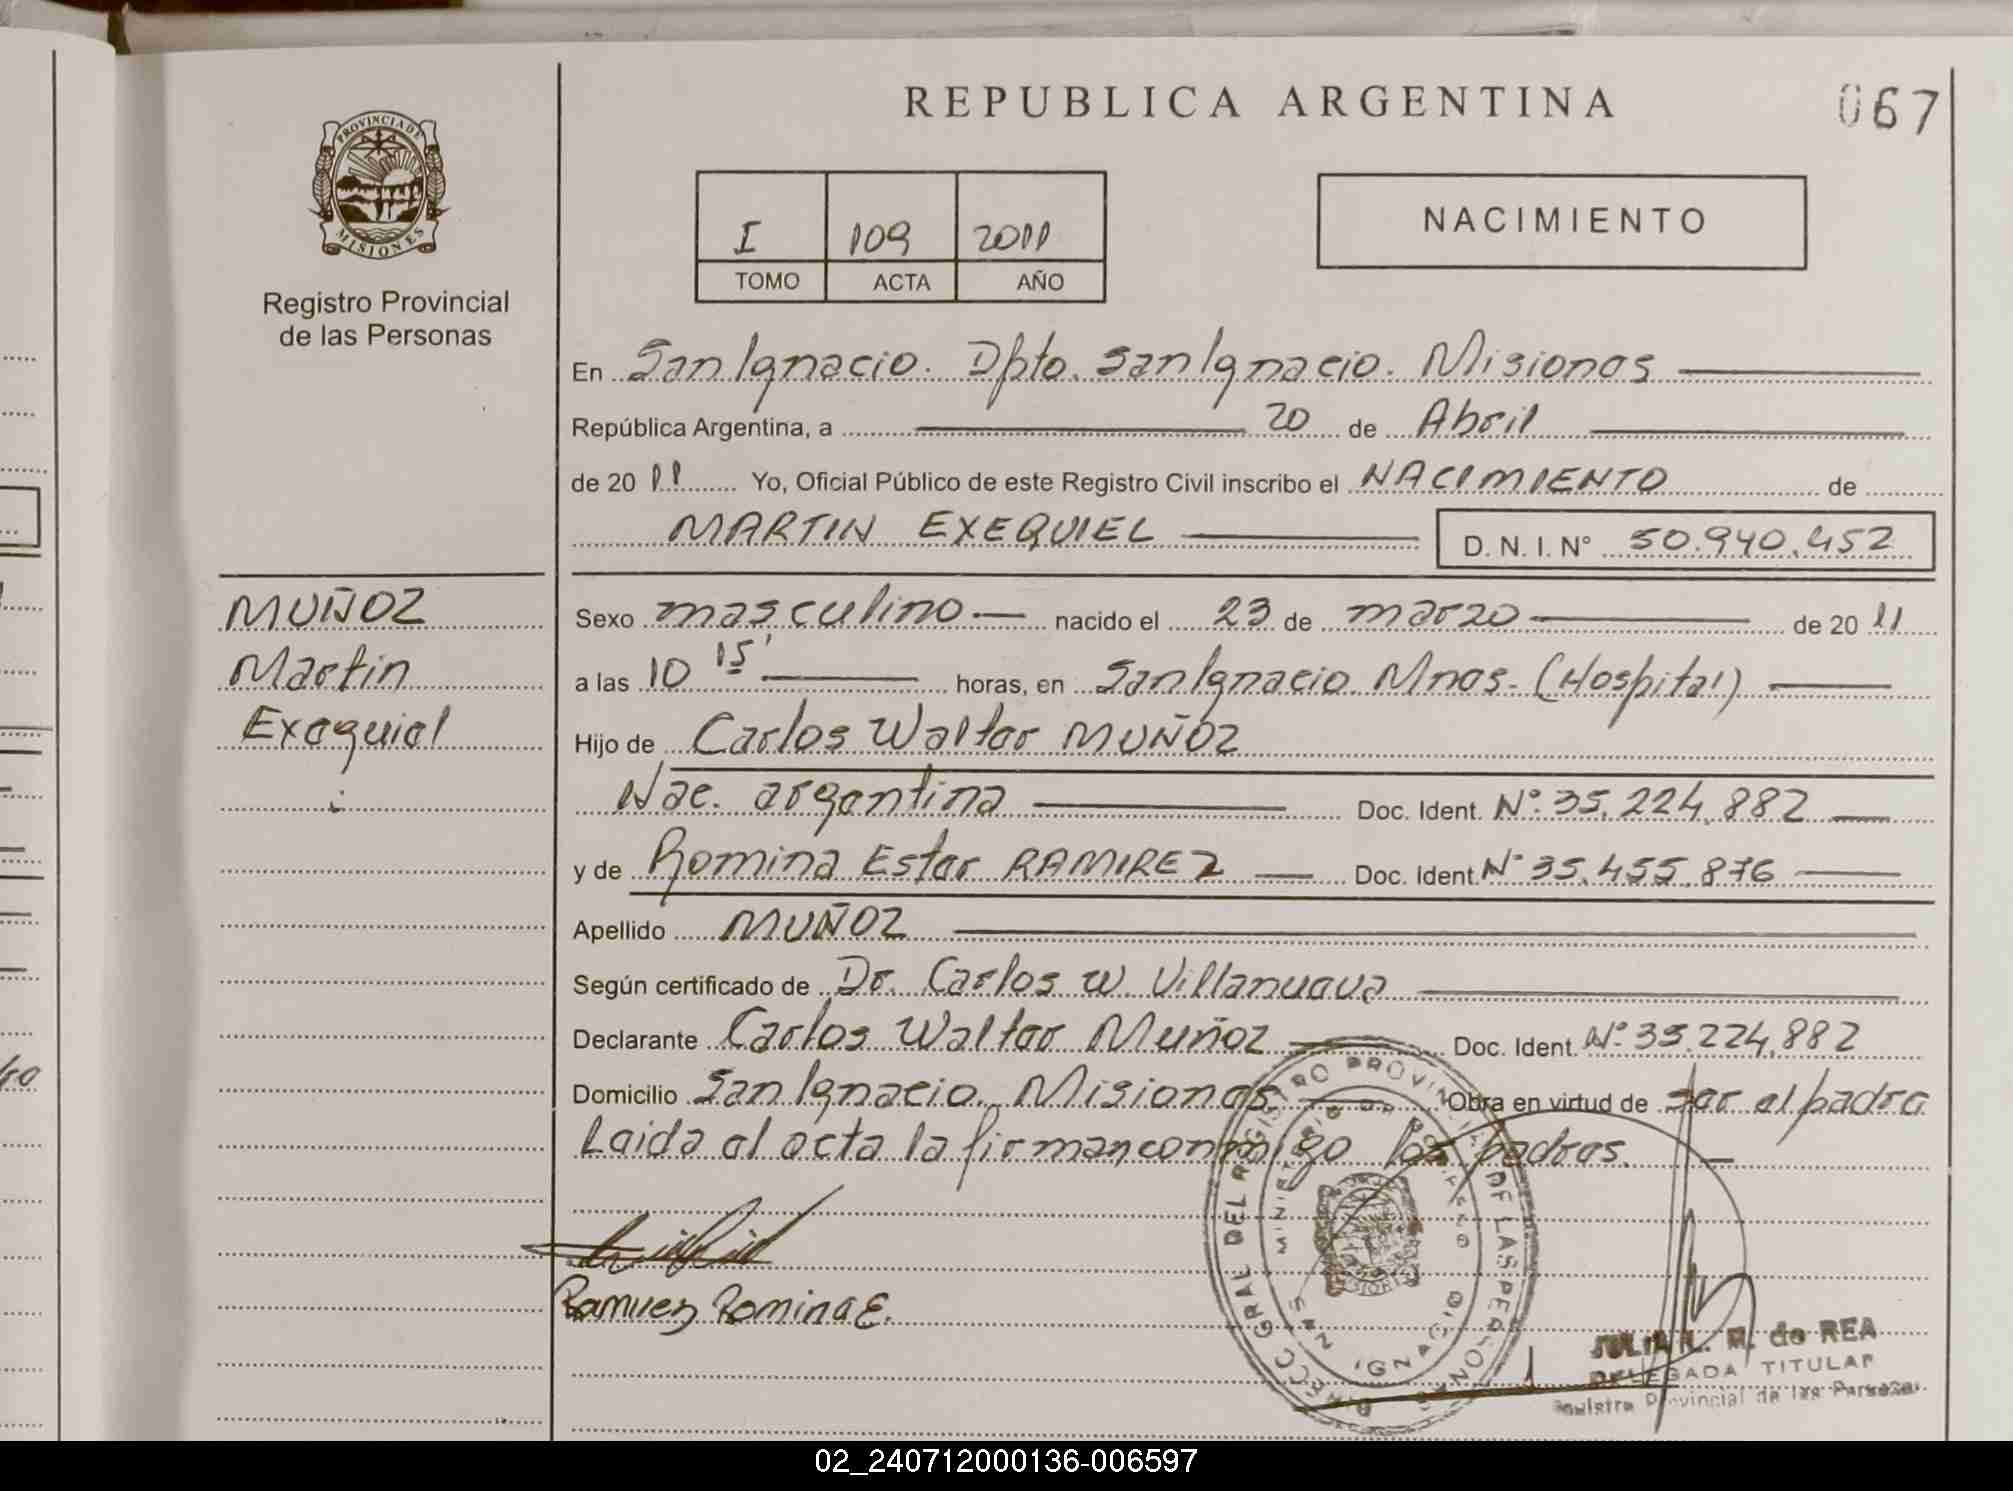 REPUBLICA ARGENTINA
067
PROVINCIA DE
MISIONES
Registro Provincial
de las Personas
I 109 2011
TOMO ACTA AÑO
NACIMIENTO
En San Ignacio. Dpto. San Ignacio. Misiones
República Argentina, a 20 de Abril
de 20 11 Yo, Oficial Público de este Registro Civil inscribo el NACIMIENTO de
MARTIN EXEQUIEL D. N. I. N° 50.940.452
MUÑOZ
Martin
Exequiel
Sexo masculino nacido el 23 de marzo de 20 11
a las 10 15' horas, en San Ignacio Mnes. (Hospital)
Hijo de Carlos Walter MUÑOZ
Nac. argentina Doc. Ident. N°. 35.224.882
y de Romina Ester RAMIREZ Doc. Ident. N° 35.455.876
Apellido MUÑOZ
Según certificado de Dr. Carlos W. Villanueva
Declarante Carlos Walter Muñoz Doc. Ident. N°. 35.224.882
Domicilio San Ignacio. Misiones Obra en virtud de ser el padre
Leida el acta la firman conmigo los padres.
Ramirez Romina E.
DIRECC GRAL DEL REGISTRO PROVINCIAL DE LAS PERSONAS
MINISTERIO DE GOBIERNO
SAN IGNACIO
JULIA L. R. de REA
DELEGADA TITULAR
Registro Provincial de las Personas
02_240712000136-006597